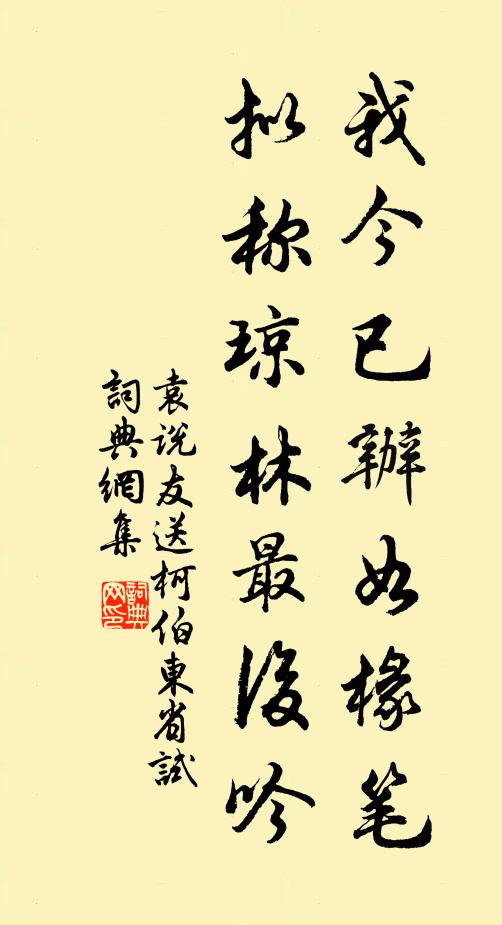 我今已辦如椽笔
拟称琼林最後吟
袁说友送柯伯東省試
詞典網集
詞典
网印